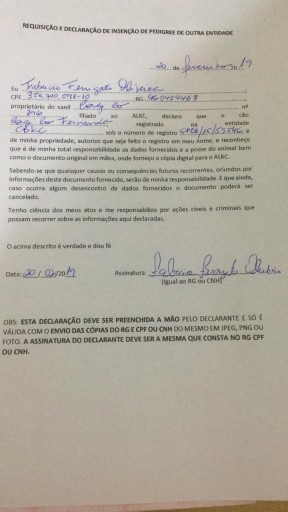 REQUISIÇÃO E DECLARAÇÃO DE INSERÇÃO DE PEDIGREE DE OUTRA ENTIDADE
20 de fevereiro 19
Eu Fabricio Oliveira
CPF RG
proprietário do canil nº
filiado ao ALKC, declaro que o cão
Fernando registrado na entidade
CBKC sob o número de registro e
de minha propriedade, autorizo que seja feito o registro em meu nome, e reconheço
que é de minha total responsabilidade os dados fornecidos e a posse do animal bem
como o documento original em mãos, onde forneço a cópia digital para o ALKC.
Sabendo-se que qualquer causas ou consequências futuras recorrentes, oriundos por
informações deste documento fornecido, serão de minha responsabilidade. E que ainda,
caso ocorra algum desencontro de dados fornecidos o documento poderá ser
cancelado.
Tenho ciência dos meus atos e me responsabilizo por ações cíveis e criminais que
possam recorrer sobre as informações aqui declaradas.
O acima descrito é verdade e dou fé
Data: 20 / 02/2019 Assinatura: Fabricio Oliveira
(Igual ao RG ou CNH)
OBS: ESTA DECLARAÇÃO DEVE SER PREENCHIDA A MÃO PELO DECLARANTE E SÓ É
VÁLIDA COM O ENVIO DAS CÓPIAS DO RG E CPF OU CNH DO MESMO EM JPEG, PNG OU
FOTO. A ASSINATURA DO DECLARANTE DEVE SER A MESMA QUE CONSTA NO RG CPF
OU CNH.